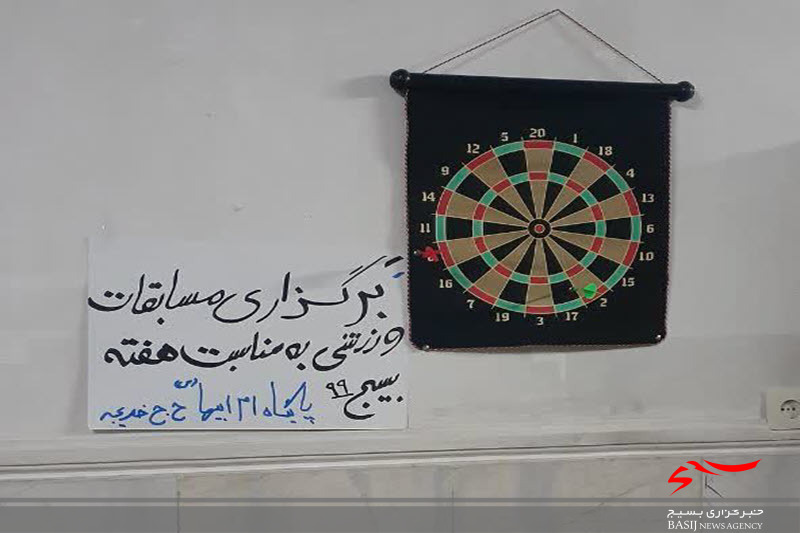 برگزاری مسابقات
ورزشی به مناسبت هفته
بسیج ۹۹
پایگاه ام ابیها ح ج خدیجه
20
1
18
4
13
6
10
15
2
17
3
19
7
16
8
11
14
9
12
5
خبرگزاری بسیج
BASIJ NEWS AGENCY